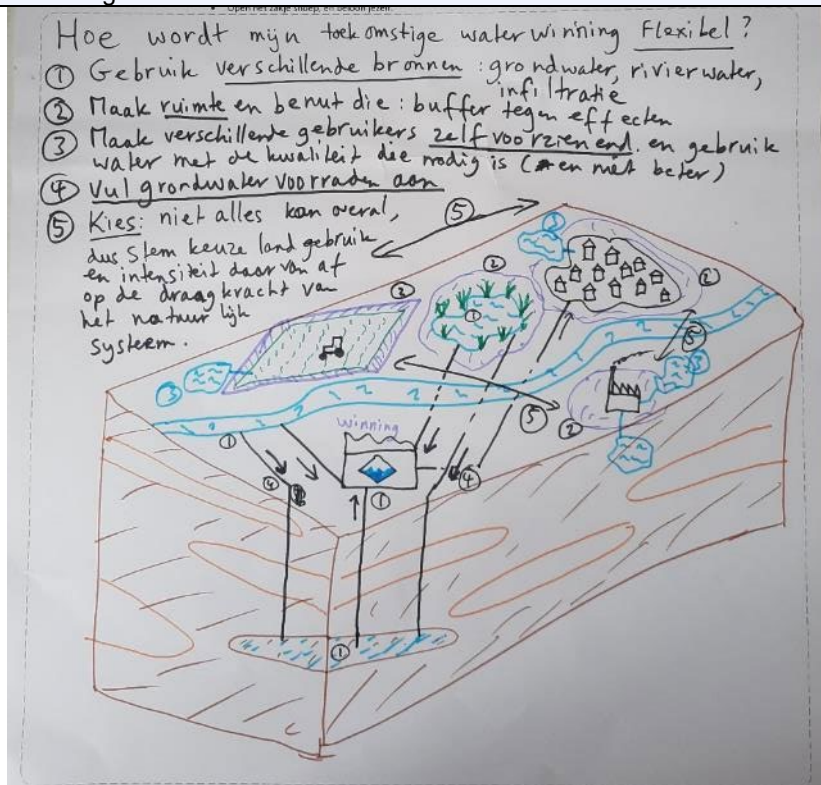 Open het zakje snoep, en beloon jezelf.
Hoe wordt mijn toekomstige waterwinning Flexibel?
① Gebruik verschillende bronnen: grondwater, rivierwater,
infiltratie
② Maak ruimte en benut die: buffer tegen effecten
③ Maak verschillende gebruikers zelfvoorzienend. en gebruik
water met de kwaliteit die nodig is (en niet beter)
④ Vul grondwater voorraden aan
⑤ Kies: niet alles kan overal,
dus stem keuze land gebruik
en intensiteit daar van af
op de draagkracht van
het natuurlijk
systeem.
⑤
③
②
②
①
②
③
⑤
③
⑤
②
①
winning
④
④
①
①